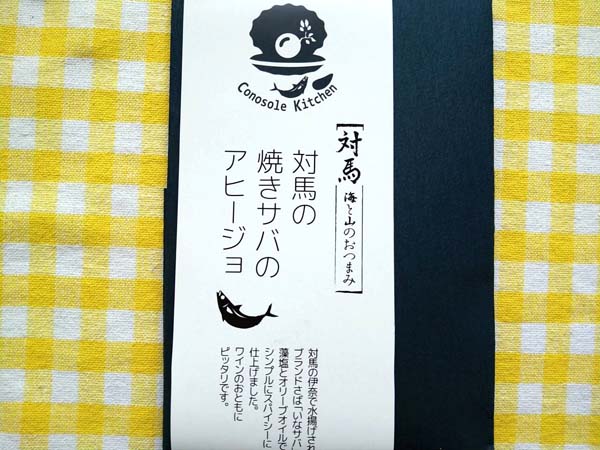 Conosole Kitchen
対馬
海と山のおつまみ
対馬の
焼きサバの
アヒージョ
対馬の伊奈で水揚げされ
ブランドさば「いなサバ」
藻塩とオリーブオイルで
シンプルにスパイシーに
仕上げました。
ワインのおともに
ピッタリです。